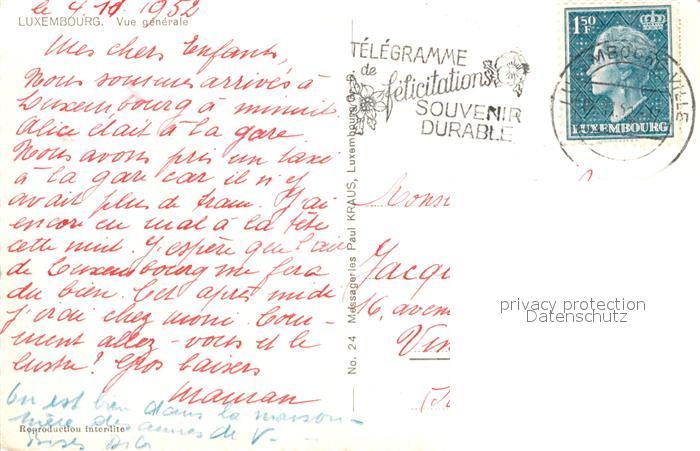 le 4. 11 1952
LUXEMBOURG. Vue générale
Mes chers Enfants,
Nous sommes arrivés à
Luxembourg à minuit
Alice était à la gare
Nous avons pris un taxi
à la gare car il n'y
avait plus de tram. J'ai
encore eu mal à la tête
cette nuit. J'espère que l'air
de Luxembourg me fera
du bien. Cet après midi
j'irai chez moni. Com-
ment allez-vous et le
lustre? Gros baisers
Maman
On est bien dans la maison-
des de V-
Reproduction interdite
No. 24 Messageries Paul KRAUS, Luxembourg
TÉLÉGRAMME
de
félicitations
SOUVENIR
DURABLE
1F50
LUXEMBOURG
LUXEMBOURG-VILLE
Monsi
Jacqu
16, aven
Vin
privacy protection
Datenschutz